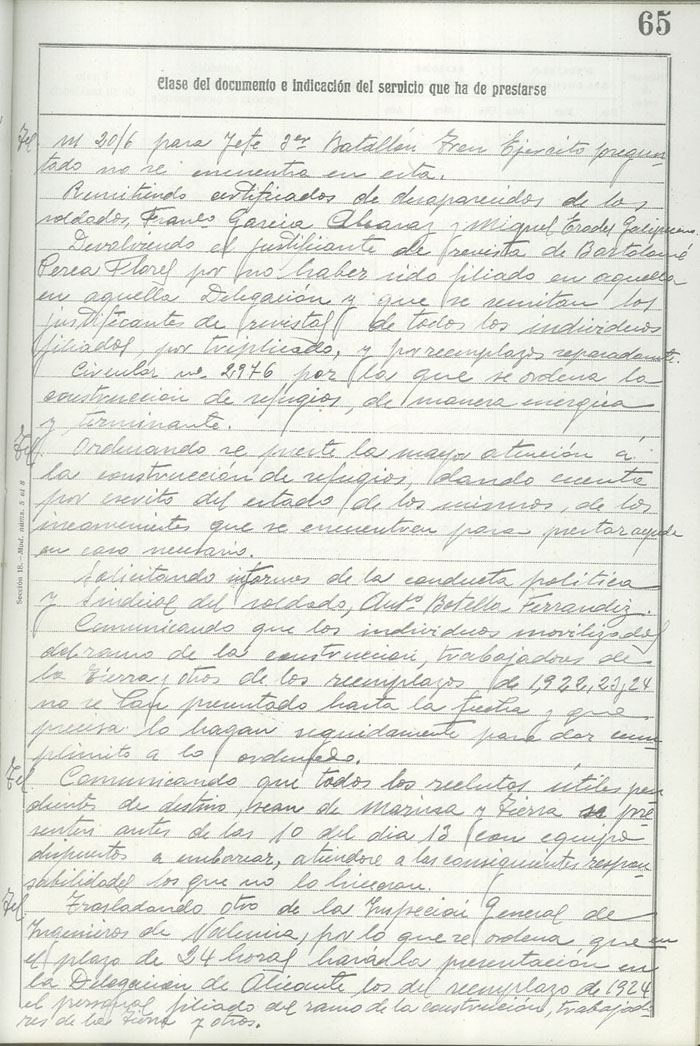 65
Clase del documento e indicación del servicio que ha de prestarse
Tel. nº 20/6 para Jefe 2er Batallón Tren Ejercito pregun-
tado no se encuentra en esta.
Remitiendo certificados de desaparecidos de los
soldados, Franco Garcia Alcaraz y Miguel
Devolviendo el justificante de revista de Bartolomé
Perea Flores por no haber sido filiado en aquella
en aquella Delegación y que se remitan los
justificantes de revistas de todos los individuos
filiados, por triplicado, y por reemplazos separadamte.
Circular nº 2976 por la que se ordena la
construcción de refugios, de manera energica
y terminante.
Tel. Ordenando se preste la mayor atención a
la construcción de refugios, dando cuenta
por escrito del estado de los mismos, de los
que se encuentren para prestar ayuda
en caso necesario.
Solicitando informes de la conducta politica
y sindical del soldado, Antº Botella Ferrandiz.
Comunicando que los individuos movilizados
del ramo de la construccion, trabajadores de
la Tierra y otros de los reemplazos de 1,922, 23, 24
no se han presentado hasta la fecha y que
precisa lo hagan seguidamente para dar cum-
plimito a lo ordenado.
Tel. Comunicando que todos los reclutas utiles pen-
dientes de destino, sean de Marina y Tierra se pre-
senten antes de las 10 del dia 13 con equipo
dispuestos a embarcar, atendose a las consiguientes respon-
sabilidades los que no lo hicieran.
Tel. Trasladando otro de la Inspeción General de
Ingenieros de Valencia, por lo que se ordena que en
el plazo de 24 horas harán la presentación en
la Delegación de Alicante los del reemplazo de 1924
el personal filiado del ramo de la construcción, trabajado-
res de la Tierra y otros.
Sección 18.—Mod. núms. 5 al 8